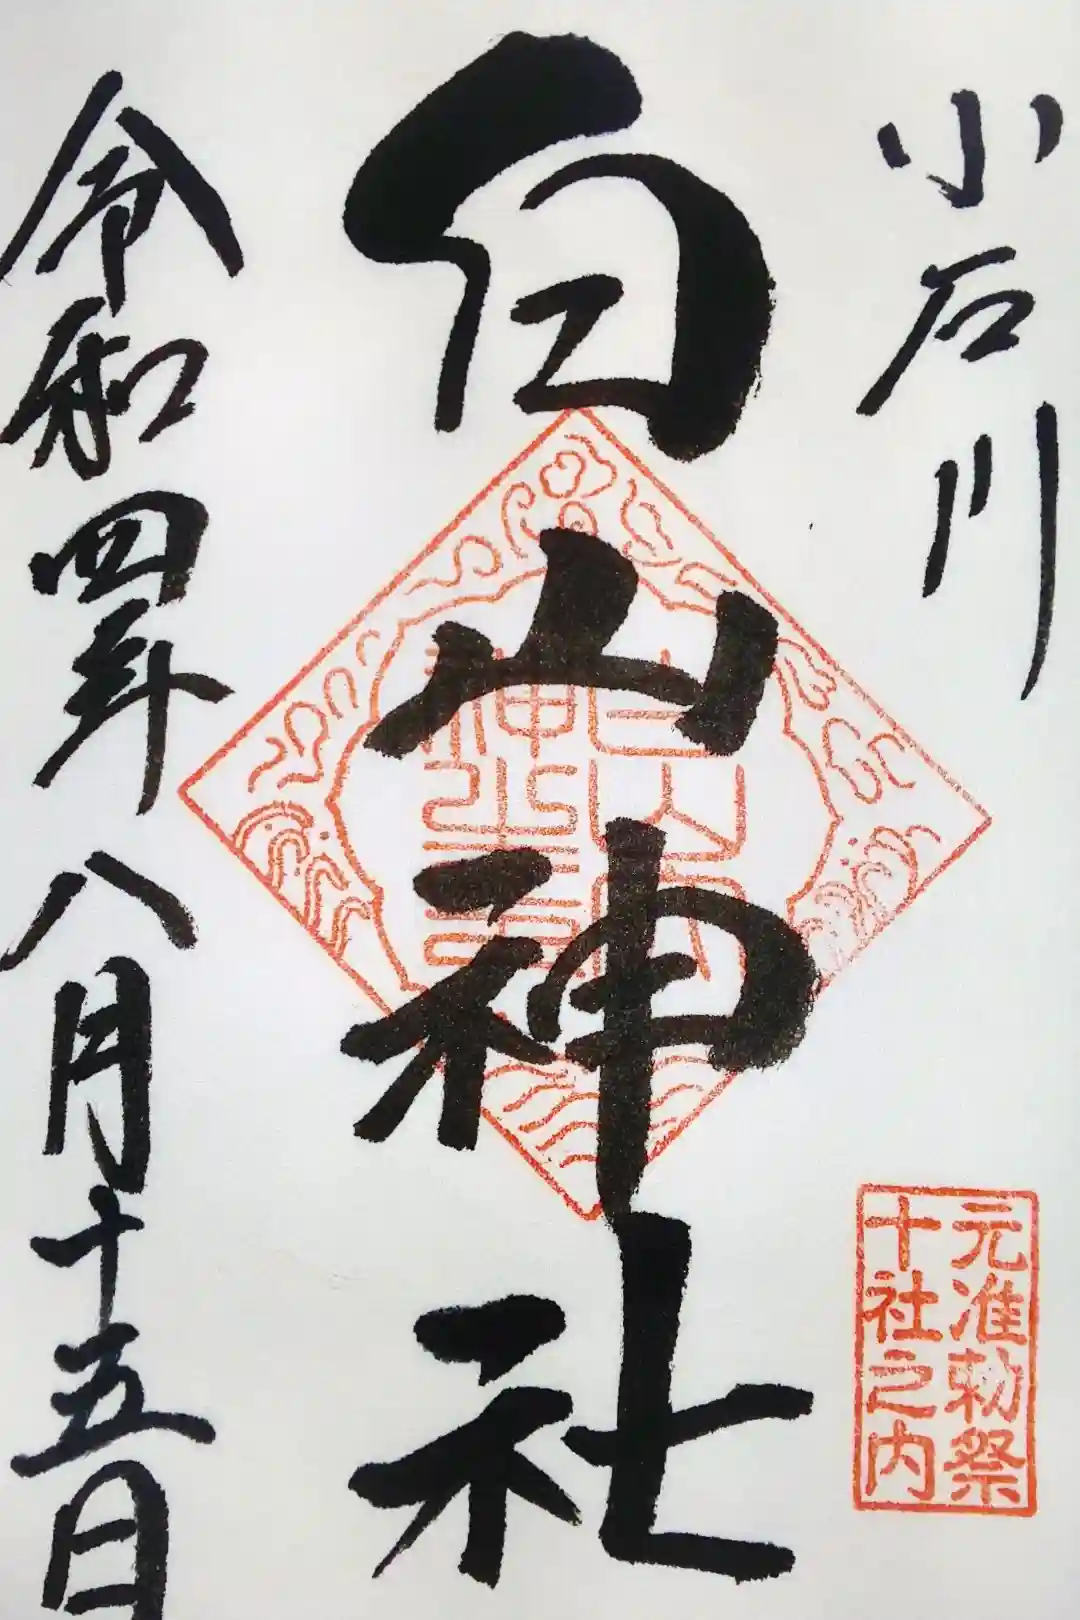 小石川
元准勅祭
十社之内
白山神社
令和四年八月十五日